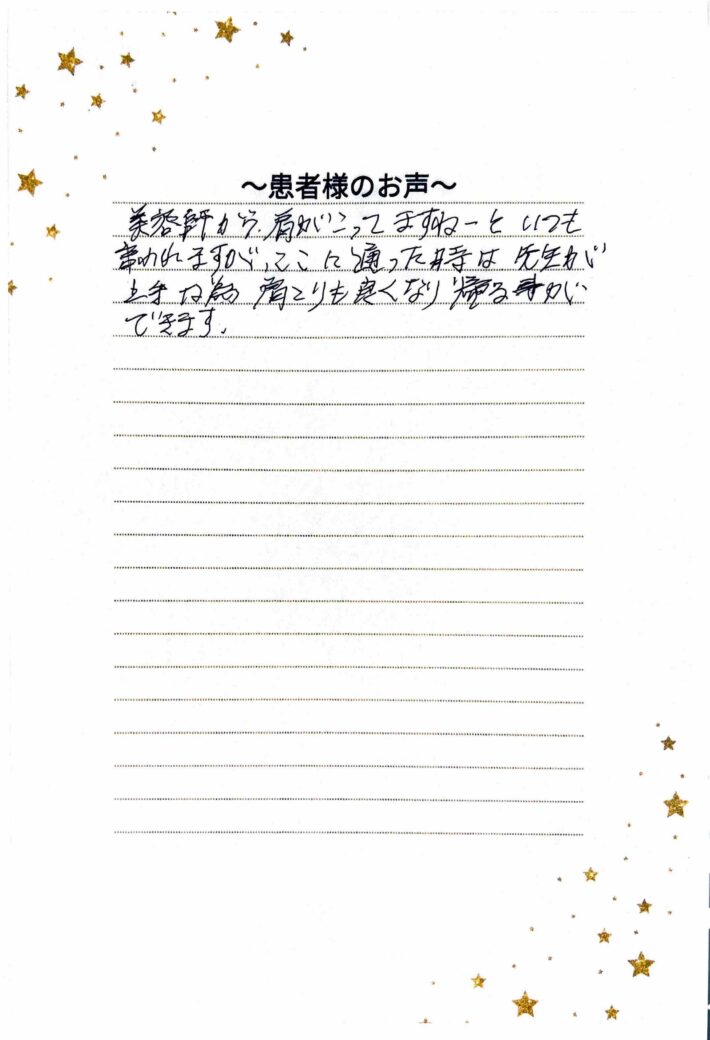 ～患者様のお声～
美容師から、肩がこってますねーと いつも
言われますが、ここに通った時は 先生が
上手な為 肩こりも良くなり 帰る事が
できます。